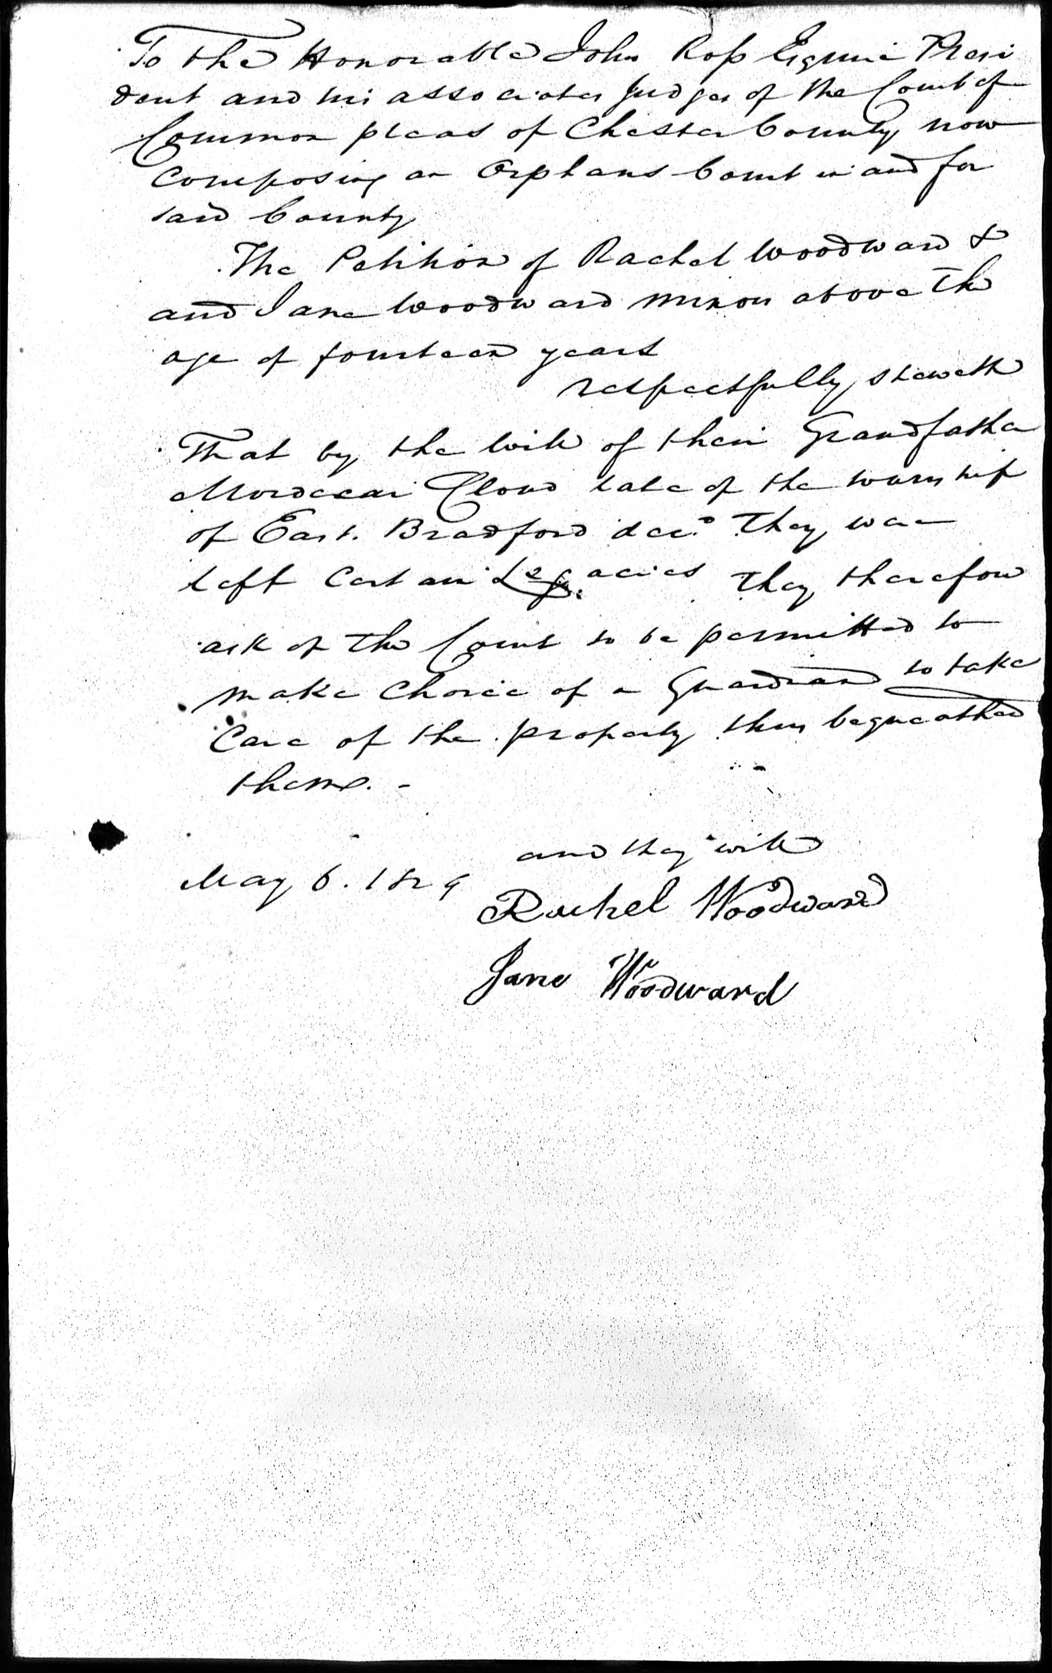 To the Honorable John Ross Esquire Presi
dent and his associates Judges of the Court of
Common pleas of Chester County now
Composing an Orphans Court in and for
said County
The Petition of Rachel Woodward &
and Jane Woodward minors above the
age of fourteen years
respectfully sheweth
That by the will of their Grandfather
Mordecai Cloud late of the township
of East Bradford decd. They were
left Certain Legacies They therefore
ask of the Court to be permitted to
make Choice of a Guardian to take
Care of the property thus bequeathed
them. -
and they will
May 6. 1829
Rachel Woodward
Jane Woodward